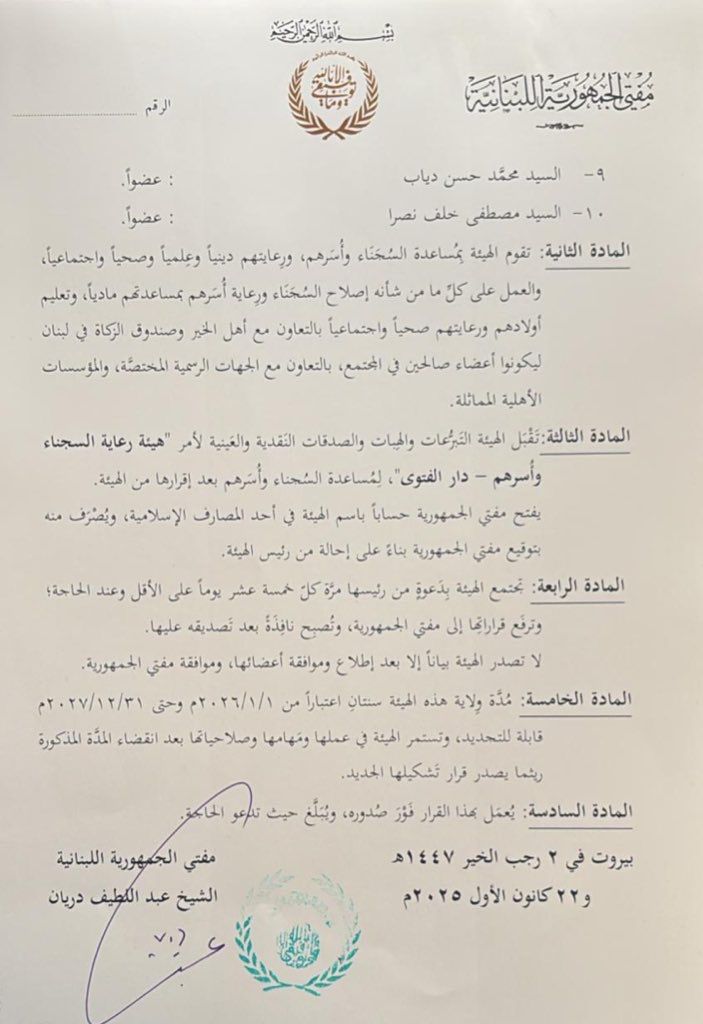 بِسْمِ اللهِ الرَّحْمٰنِ الرَّحِيْمِ
مُفتي الجُمهُوريَّة اللبنَانيَّة
وما توفيقي إلا بالله
الرقم
٩- السيد محمَّد حسن دياب : عضواً.
١٠- السيد مصطفى خلف نصرا : عضواً.
المادة الثانية: تقوم الهيئة بِمُساعدة السُجَنَاء وأُسَرهم، ورِعايتهم دينياً وعِلمياً وصحياً واجتماعياً،
والعمل على كلِّ ما من شأنه إصلاح السُجَنَاء ورِعاية أُسَرهم بمساعدتهم مادياً، وتعليم
أولادهم ورعايتهم صحياً واجتماعياً بالتعاون مع أهل الخير وصندوق الزكاة في لبنان
ليكونوا أعضاء صالحين في المجتمع، بالتعاون مع الجهات الرسمية المختصَّة، والمؤسسات
الأهلية المماثلة.
المادة الثالثة: تَقْبَل الهيئة التَبرُّعات والهِبات والصدقات النَقدية والعَينية لأمر "هيئة رعاية السجناء
وأُسرهم – دار الفتوى"، لِمُساعدة السُجناء وأُسَرهم بعد إقرارها من الهيئة.
يفتح مفتي الجمهورية حساباً باسم الهيئة في أحد المصارف الإسلامية، ويُصْرَف منه
بتوقيع مفتي الجمهورية بناءً على إحالة من رئيس الهيئة.
المادة الرابعة: تجتمع الهيئة بِدَعوةٍ من رئيسها مرَّة كلّ خمسة عشر يوماً على الأقل وعند الحاجة؛
وترفَع قراراتها إلى مفتي الجمهورية، وتُصبِح نافِذَةً بعد تَصديقه عليها.
لا تصدر الهيئة بياناً إلا بعد إطلاع وموافقة أعضائها، وموافقة مفتي الجمهورية.
المادة الخامسة: مُدَّة وِلاية هذه الهيئة سنتانِ اعتباراً من ٢٠٢٦/١/١م وحتى ٢٠٢٧/١٢/٣١م
قابلة للتجديد، وتستمر الهيئة في عملها ومَهامها وصلاحياتها بعد انقضاء المدَّة المذكورة
ريثما يصدر قرار تَشكيلها الجديد.
المادة السادسة: يُعمَل بهذا القرار فَوْرَ صُدوره، ويُبَلَّغ حيث تدعو الحاجة.
بيروت في ٢ رجب الخير ١٤٤٧هـ
و٢٢ كانون الأول ٢٠٢٥م
مفتي الجمهورية اللبنانية
الشيخ عبد اللطيف دريان